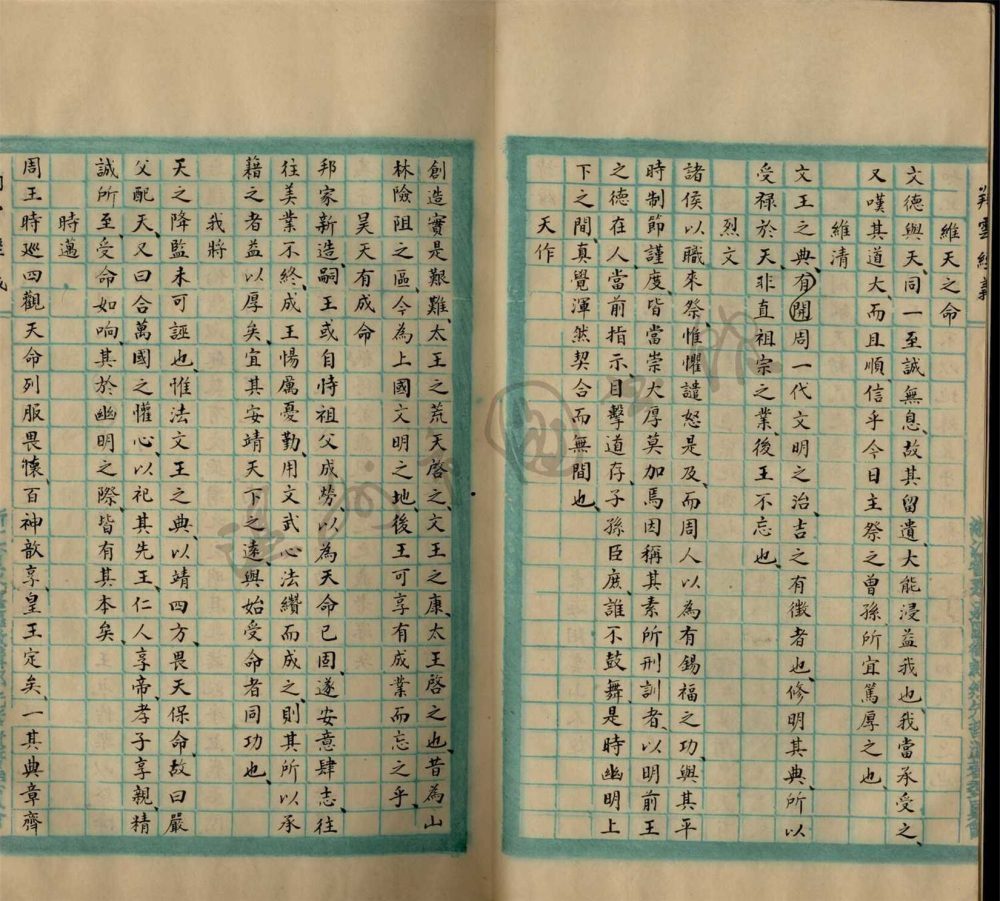 維天之命
文德與天、同一至誠無息、故其留遺、大能浸益我也、我當承受之、
又嘆其道大、而且順、信乎今日主祭之曾孫、所宜篤厚之也、
維清
文王之典、有開周一代文明之治、吉之有徵者也、修明其典、所以
受祿於天、非直祖宗之業、後王不忘也、
烈文
諸侯以職來祭、惟懼譴怒是及、而周人以為有錫福之功、與其平
時制節謹度、皆當崇大厚莫加焉、因稱其素所刑訓者、以明前王
之德在人、當前指示、目擊道存、子孫臣庶、誰不鼓舞、是時幽明上
下之間、真覺渾然契合而無間也、
天作
創造實是艱難、太王之荒、天啓之、文王之康、太王啓之也、昔為山
林險阻之區、今為上國文明之地、後王可享有成業而忘之乎、
昊天有成命
邦家新造、嗣王或自恃祖父成勞、以為天命已固、遂安意肆志、往
往美業不終、成王惕厲憂勤、用文武心法纘而成之、則其所以承
藉之者益以厚矣、宜其安靖天下之遠、與始受命者同功也、
我將
天之降監未可誣也、惟法文王之典、以靖四方、畏天保命、故曰嚴
父配天、又曰合萬國之懽心、以祀其先王、仁人享帝、孝子享親、精
誠所至、受命如响、其於幽明之際、皆有其本矣、
時邁
周王時巡四觀、天命列服畏懷、百神歆享、皇王定矣、一其典章齊